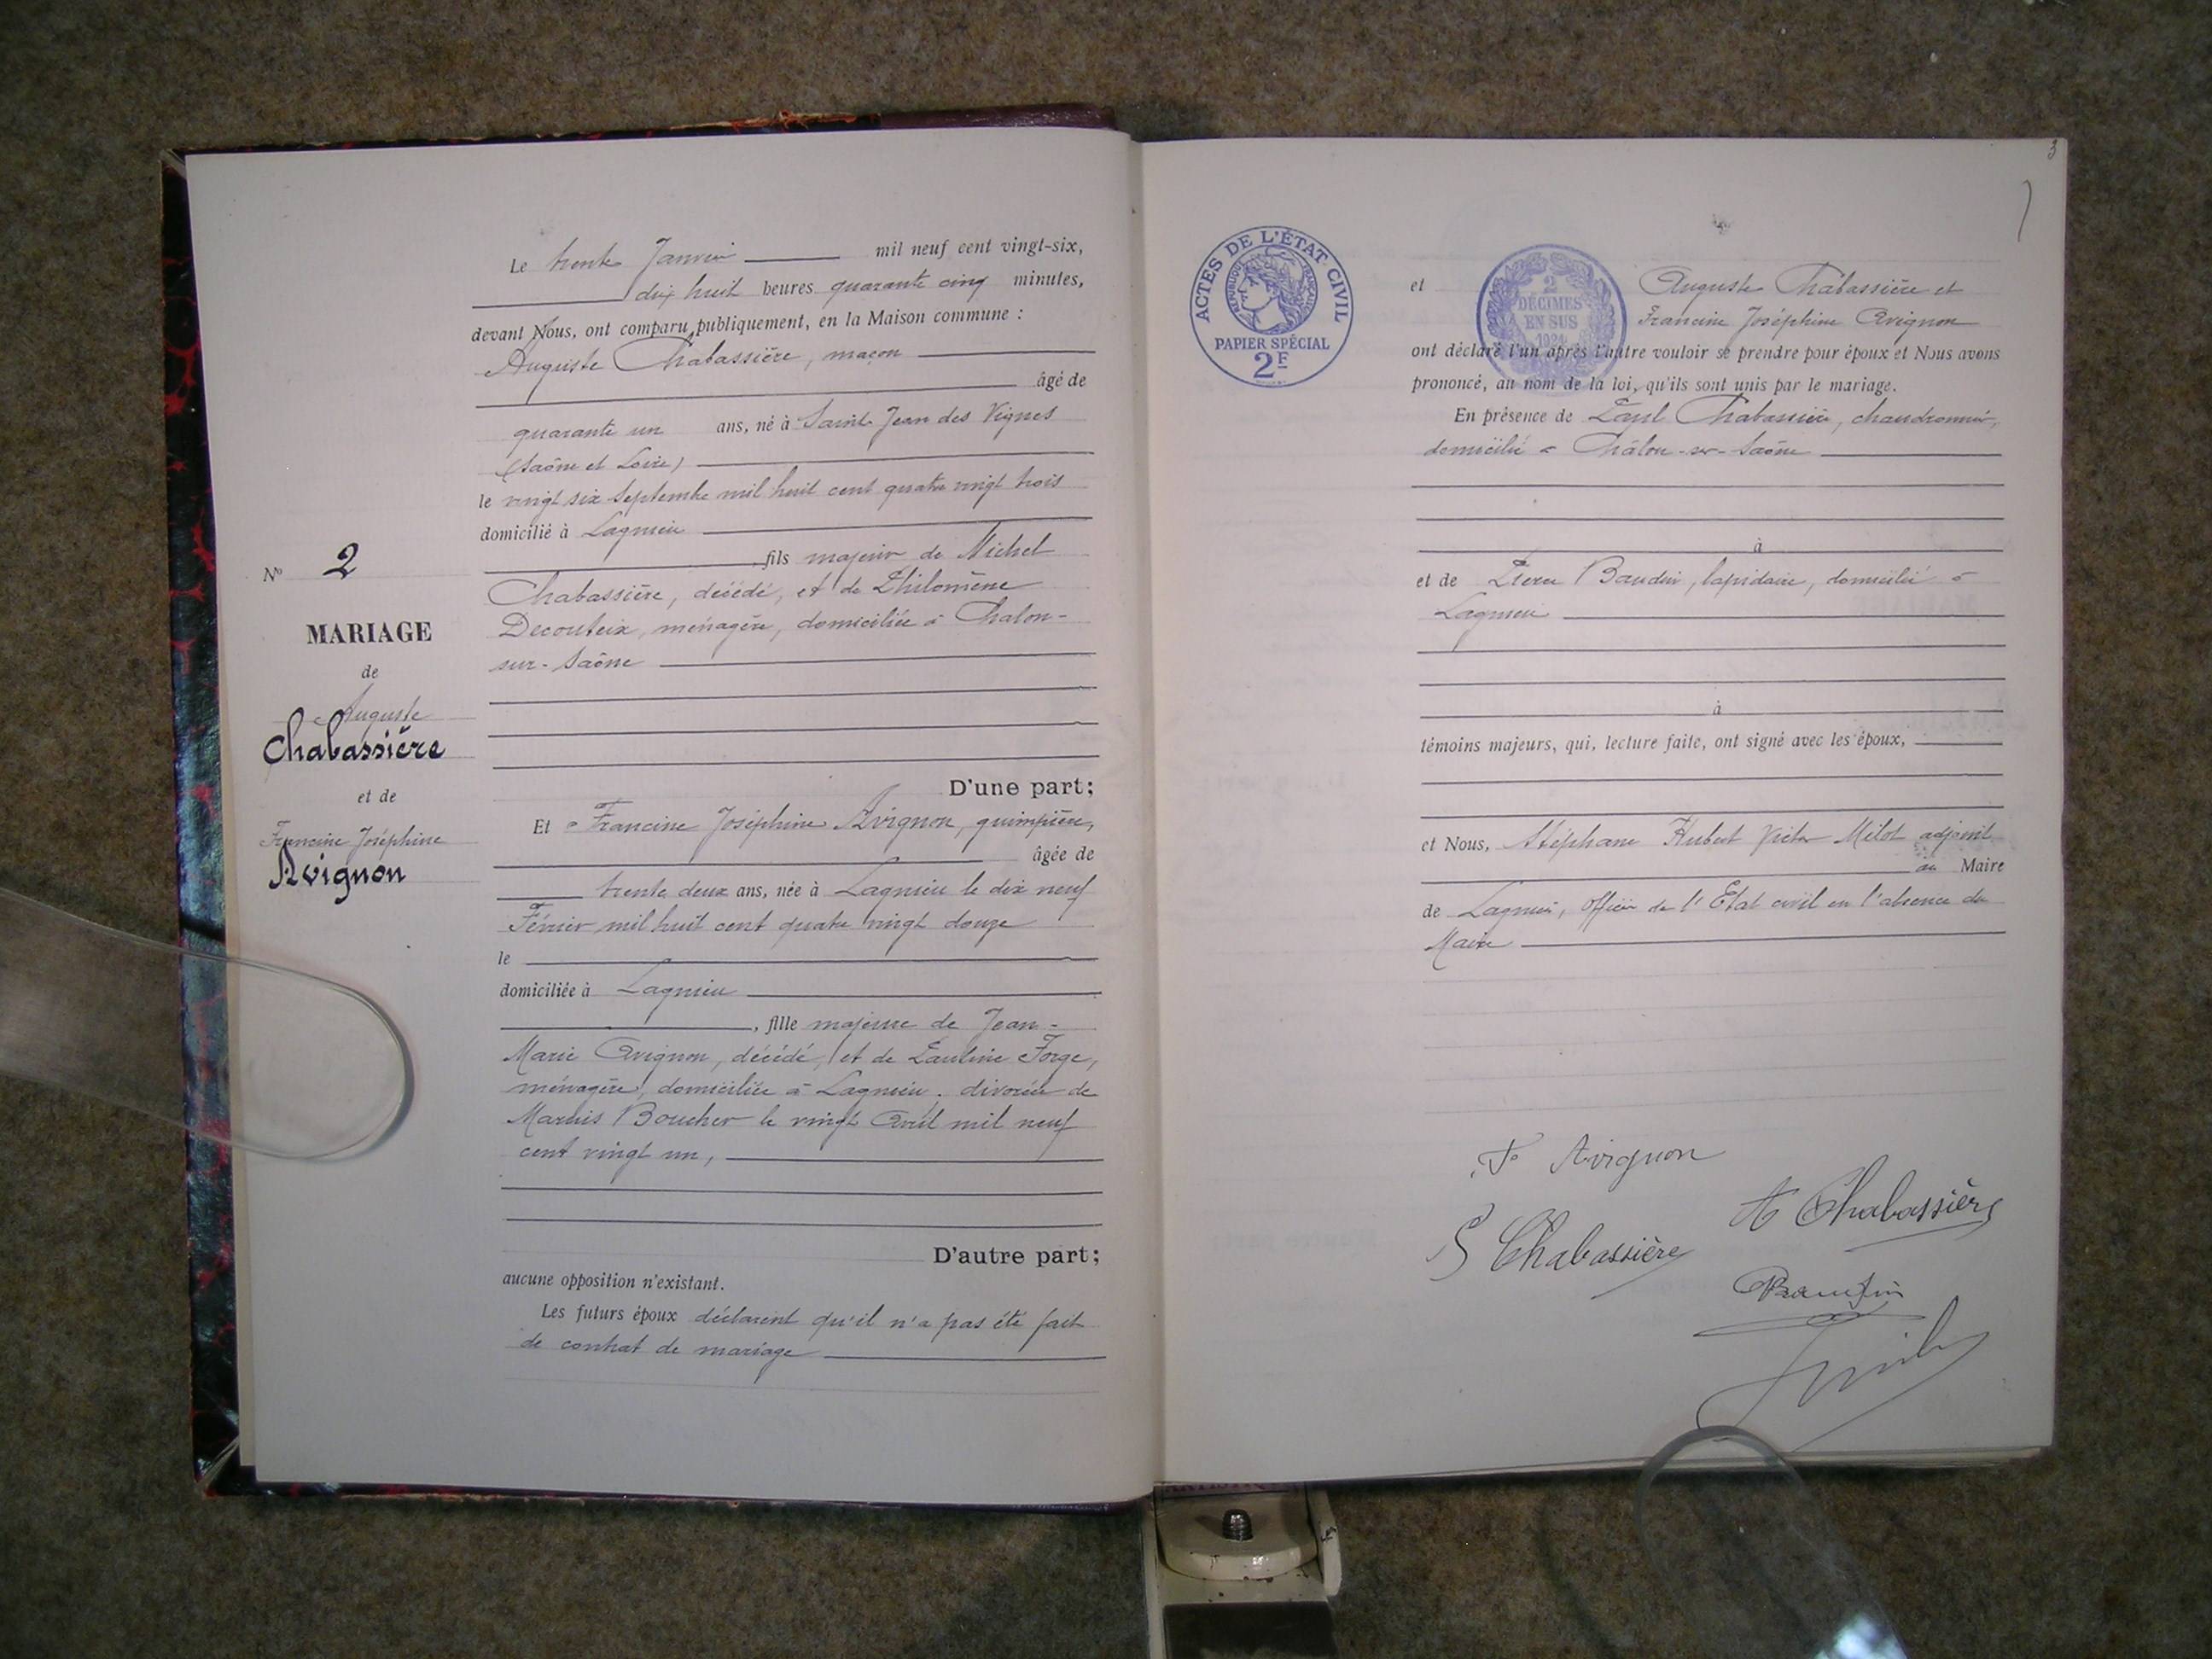 Le trente Janvier mil neuf cent vingt-six,
dix huit heures quarante cinq minutes,
devant Nous, ont comparu publiquement, en la Maison commune :
Auguste Chabassière, maçon
âgé de
quarante un ans, né à Saint Jean des Vignes
(Saône et Loire)
le vingt six Septembre mil huit cent quatre vingt trois
domicilié à Lagnieu
fils majeur de Michel
Chabassière, décédé, et de Philomène
Decouteix, ménagère, domiciliée à Chalon-
sur-Saône
D'une part;
Et Francine Joséphine Avignon, guimpière,
âgée de
trente deux ans, née à Lagnieu le dix neuf
Février mil huit cent quatre vingt douze
le
domiciliée à Lagnieu
, fille majeure de Jean-
Marie Avignon, décédé, et de Pauline Forge,
ménagère, domiciliée à Lagnieu. divorcée de
Marius Boucher le vingt Avril mil neuf
cent vingt un,
D'autre part;
aucune opposition n'existant.
Les futurs époux déclarent qu'il n'a pas été fait
de contrat de mariage
N° 2
MARIAGE
de
Auguste
Chabassière
et de
Francine Joséphine
Avignon
3
ACTES DE L'ÉTAT CIVIL
RÉPUBLIQUE FRANÇAISE
PAPIER SPÉCIAL
2F
2
DÉCIMES
EN SUS
1924
et Auguste Chabassière et
Francine Joséphine Avignon
ont déclaré l'un après l'autre vouloir se prendre pour époux et Nous avons
prononcé, au nom de la loi, qu'ils sont unis par le mariage.
En présence de Paul Chabassière, chaudronnier,
domicilié à Châlon-sur-Saône
à
et de Pierre Baudin, lapidaire, domicilié à
Lagnieu
à
témoins majeurs, qui, lecture faite, ont signé avec les époux,
et Nous, Stéphane Hubert Victor Milot adjoint
au Maire
de Lagnieu, officier de l'Etat civil en l'absence du
Maire
F Avignon
A Chabassière
P Chabassière
Baudin